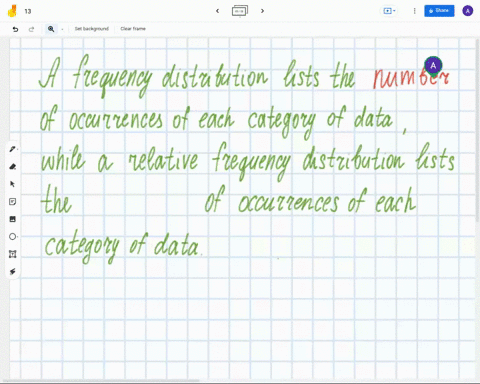 13
Share
A
Set background
Clear frame
A frequency distribution lists the number
of occurrences of each category of data,
while a relative frequency distribution lists
the of occurrences of each
category of data.
A